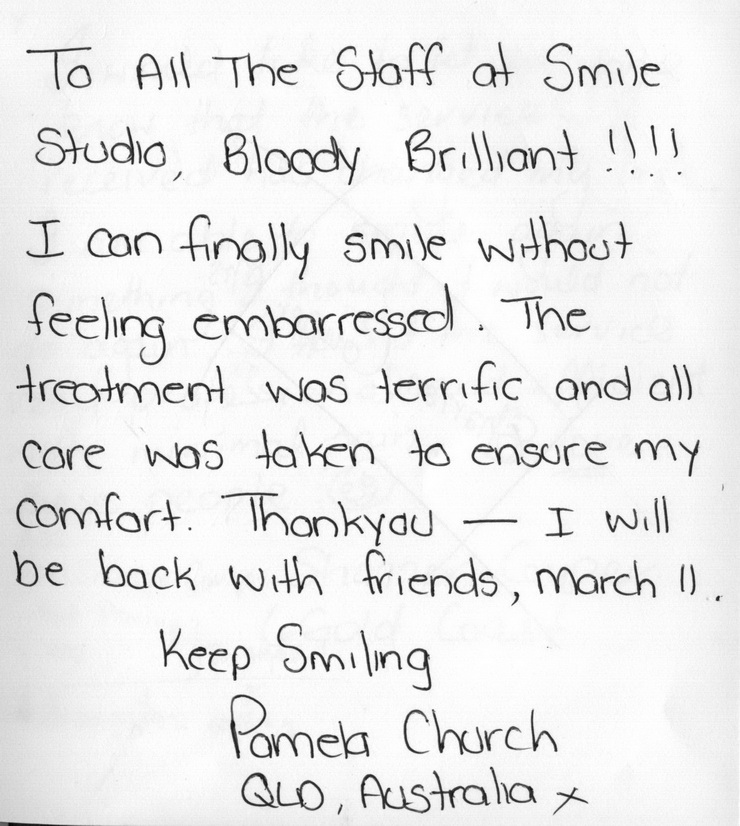 To All The Staff at Smile
Studio, Bloody Brilliant !!!!
I can finally smile without
feeling embarressed. The
treatment was terrific and all
care was taken to ensure my
comfort. Thankyou — I will
be back with friends, March 11.
Keep Smiling
Pamela Church
QLD, Australia x